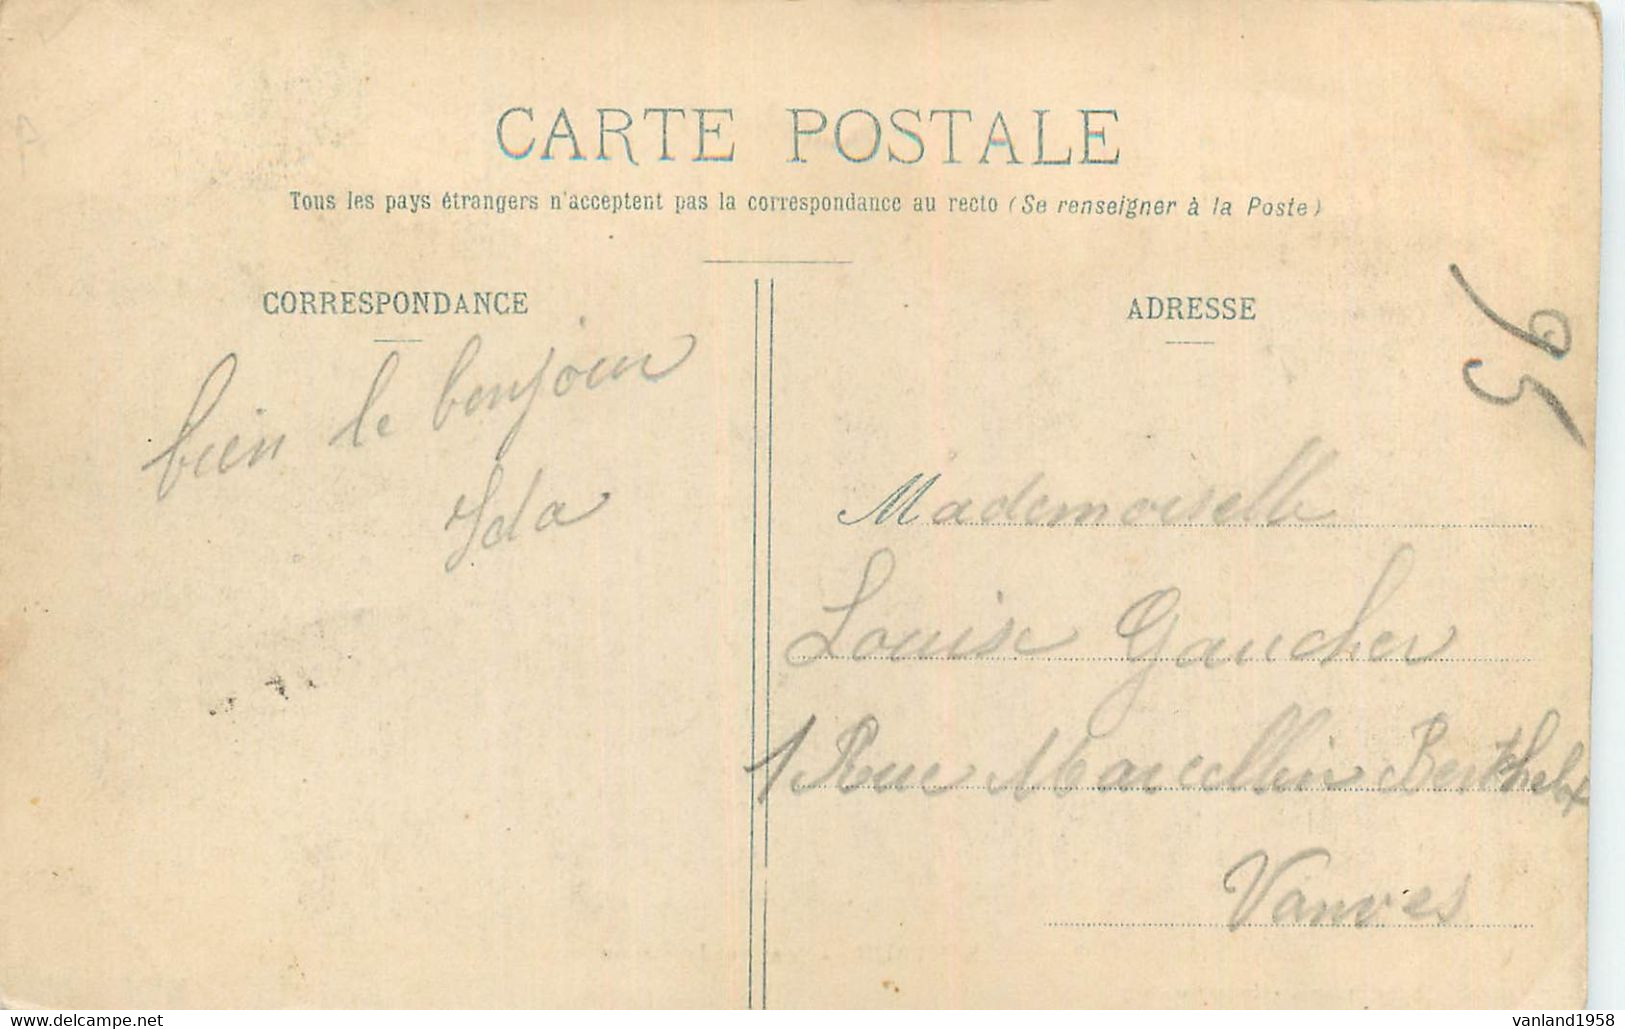 CARTE POSTALE
Tous les pays étrangers n'acceptent pas la correspondance au recto (Se renseigner à la Poste)
CORRESPONDANCE
bien le bonjour
Ida
ADRESSE
95
Mademoiselle
Louise Gaucher
1 Rue Marcellin Berthelot
Vanves
www.delcampe.net
vanland1958